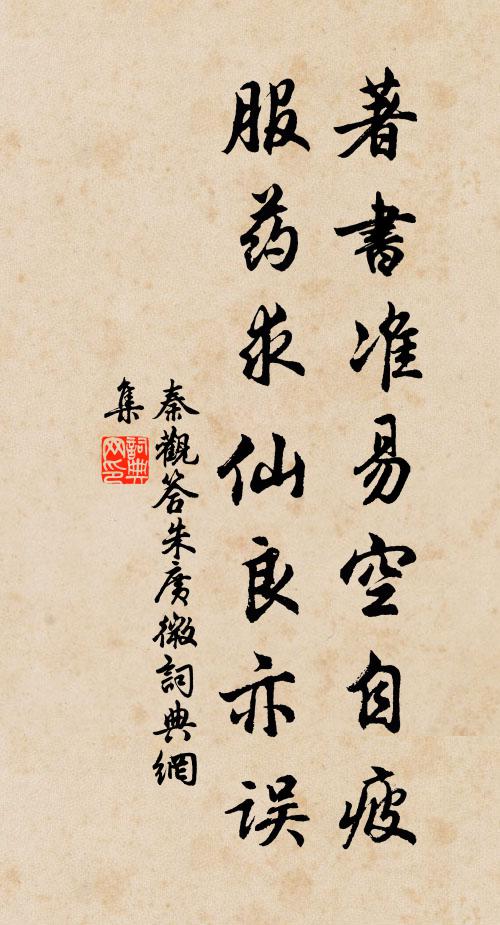 著書准易空自疲
服药求仙良亦误
秦觀答朱廣微詞典網
集
詞典网印